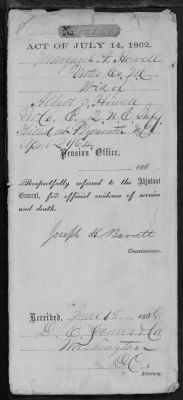 No.
ACT OF JULY 14, 1862.
Margaret A. Howell
Co. Id
Wid of
Albert J. Howell
Co. E, 2 N.C. Inf
Died at Plymouth N.C.
April 20 1864
Pension Office,
186 .
Respectfully referred to the Adjutant
General, for official evidence of service
and death.
Joseph H Barrett
Commissioner.
Received, June 18 1866
D. C. Jones & Co
Washington
D.C.
Attorney.